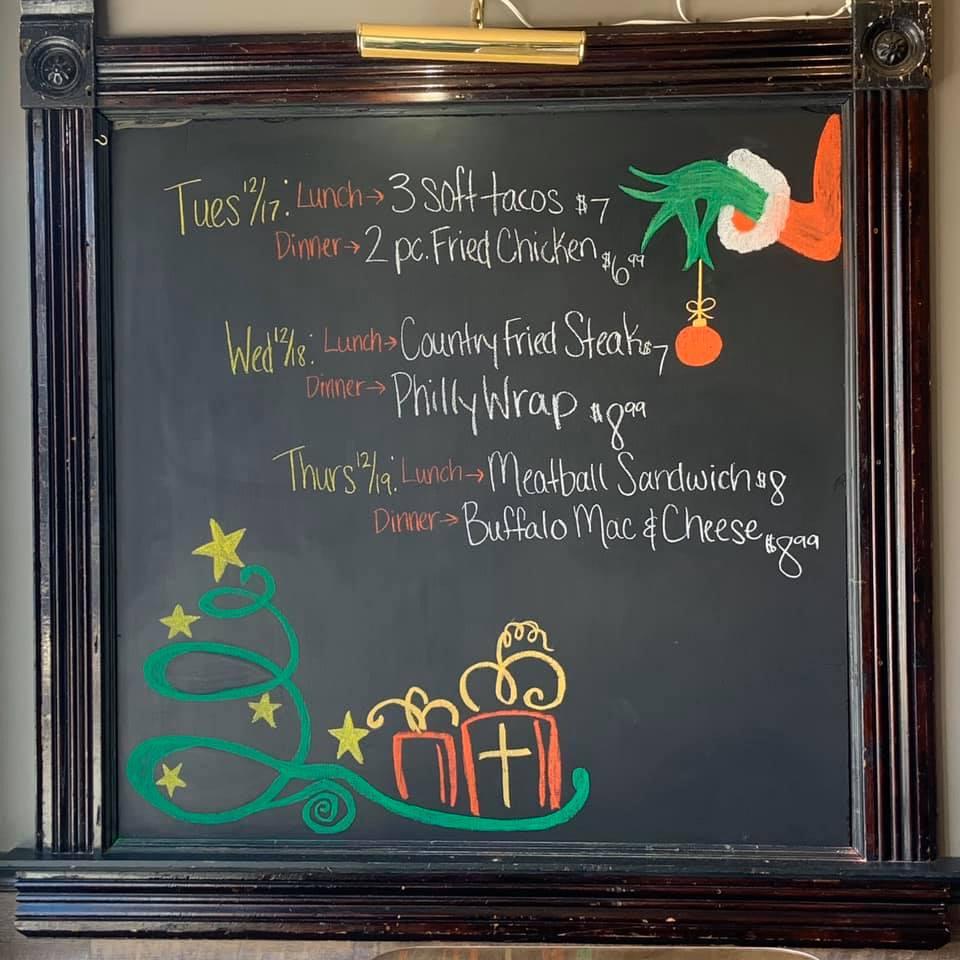 Tues 12/17: Lunch → 3 soft tacos $7
Dinner → 2 pc. Fried Chicken $6.99
Wed 12/18: Lunch → Country Fried Steak $7
Dinner → Philly Wrap $8.99
Thurs 12/19: Lunch → Meatball Sandwich $8
Dinner → Buffalo Mac & Cheese $8.99